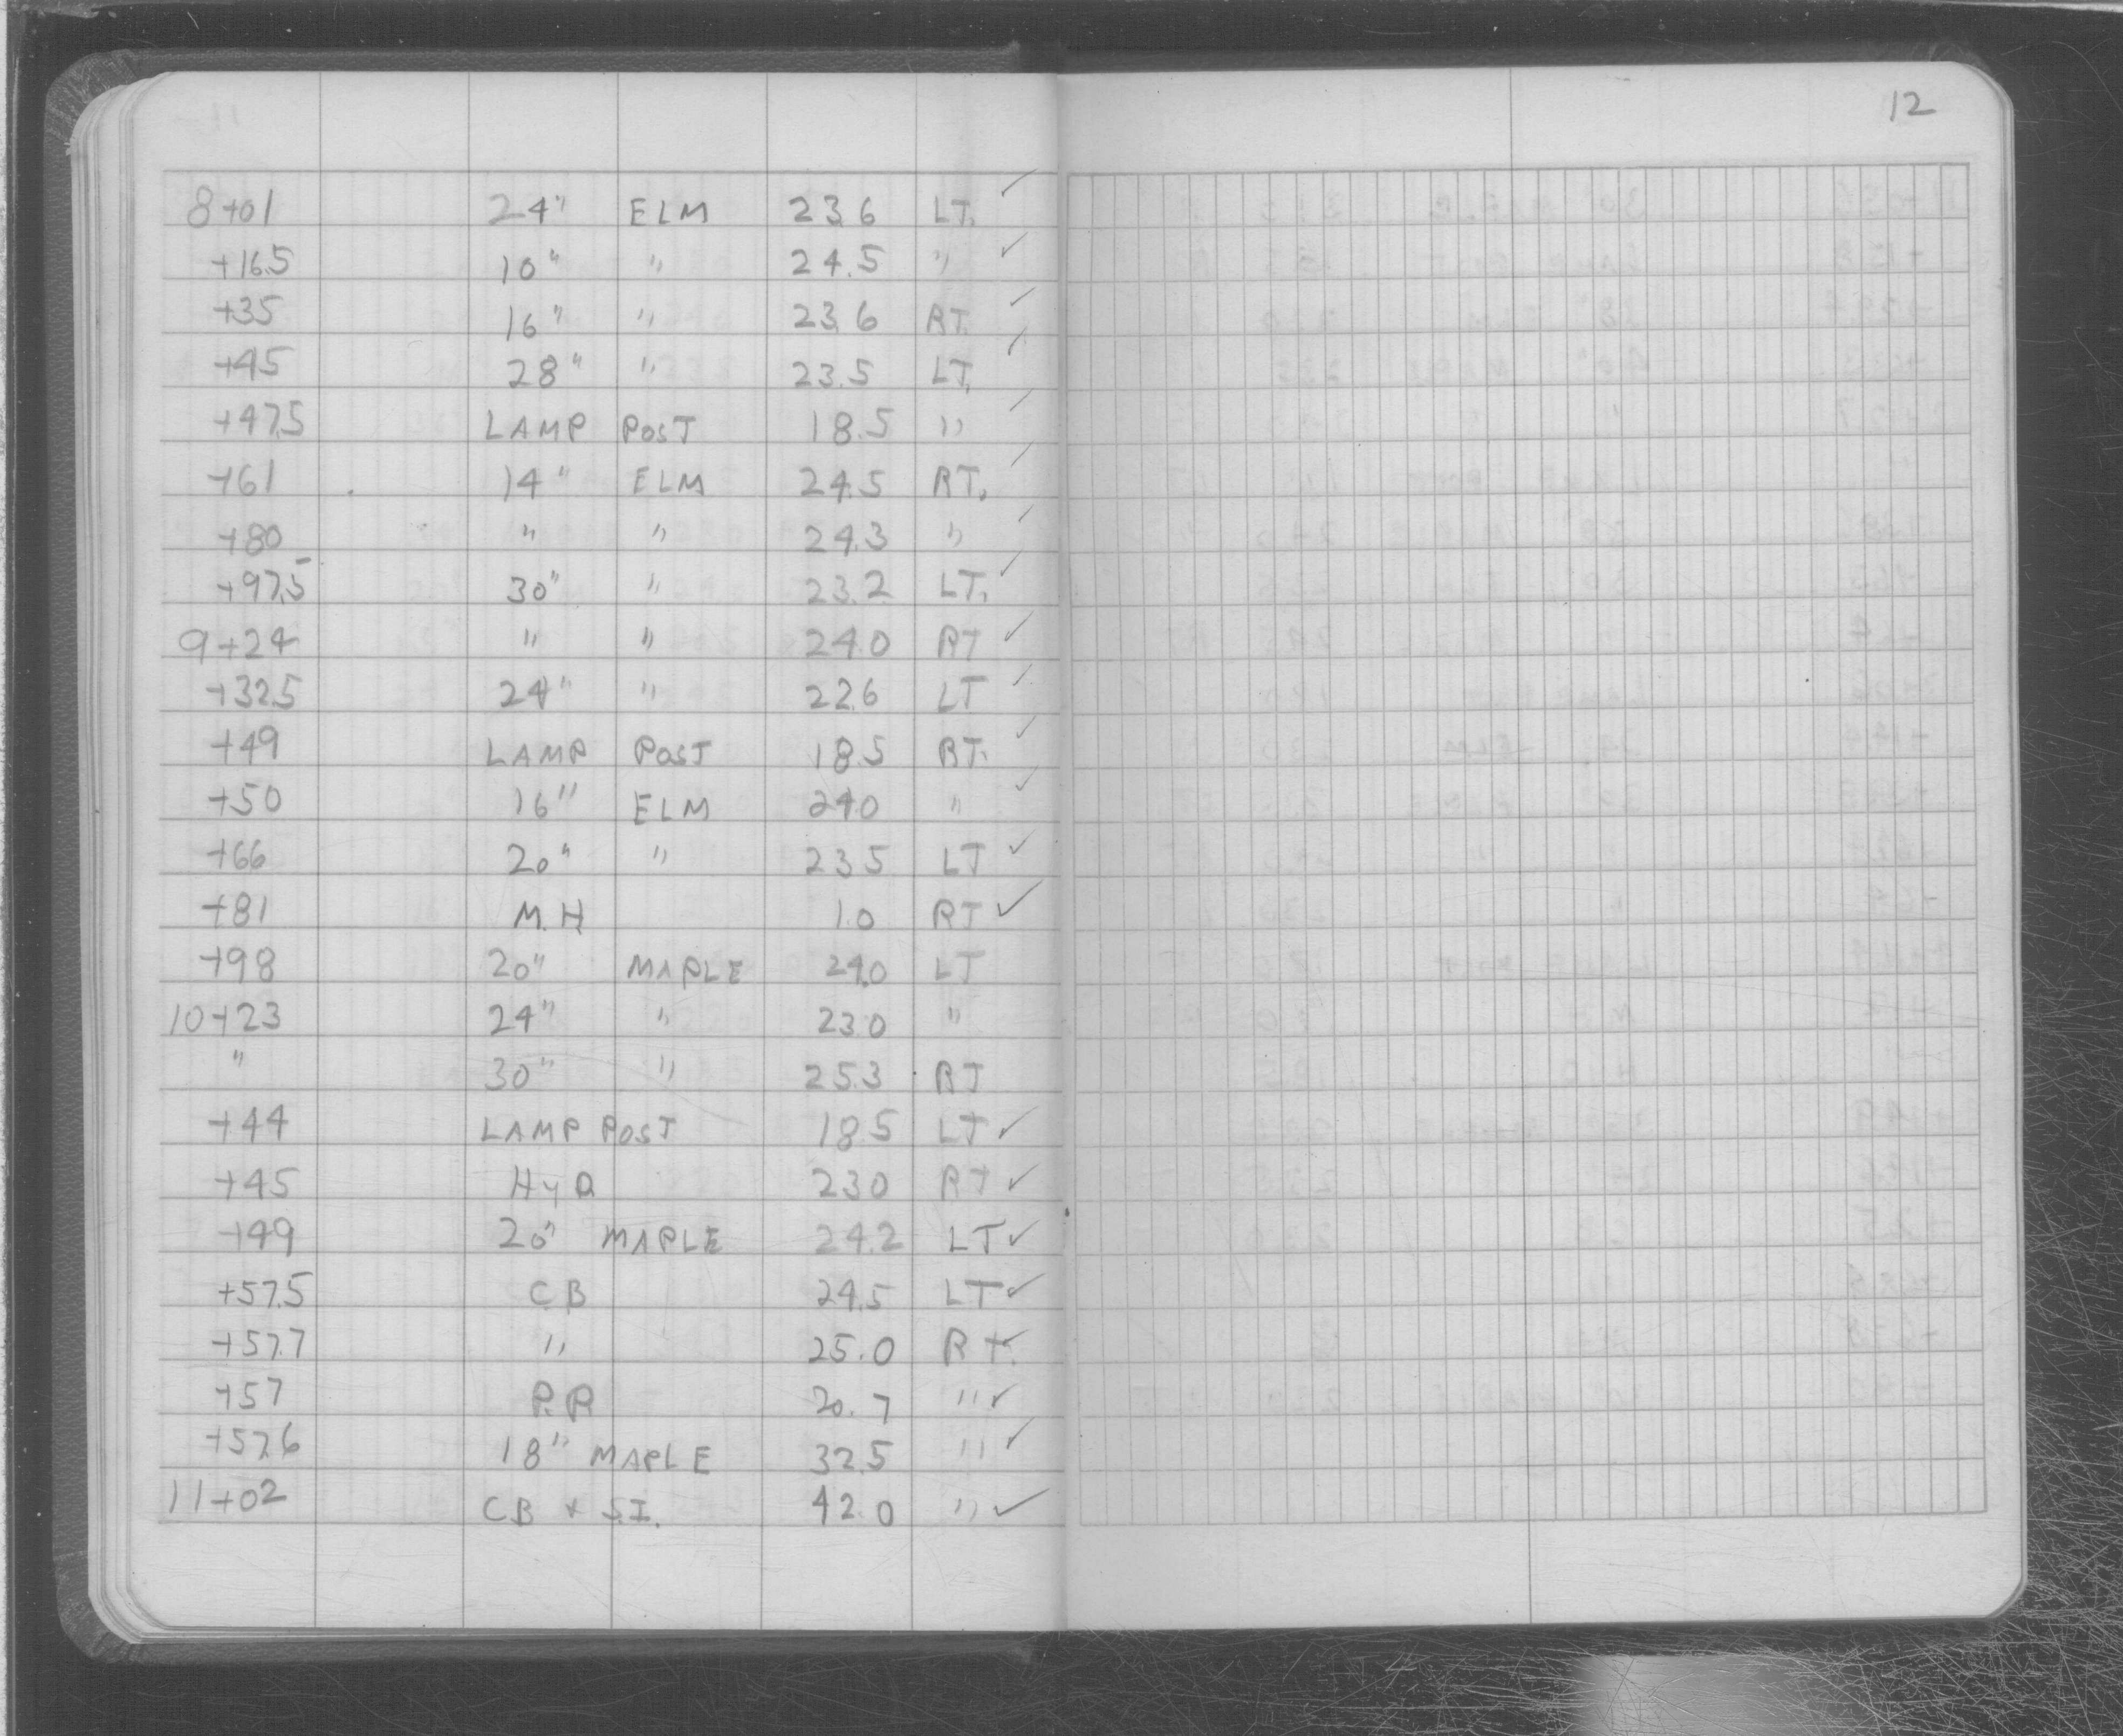 12
8+01 24" ELM 23.6 LT. ✓
+16.5 10" " 24.5 " ✓
+35 16" " 23.6 RT. ✓
+45 28" " 23.5 LT. ✓
+47.5 LAMP POST 18.5 " ✓
+61 14" ELM 24.5 RT. ✓
+80 " " 24.3 " ✓
+97.5 30" " 23.2 LT. ✓
9+24 " " 24.0 RT ✓
+32.5 24" " 22.6 LT ✓
+49 LAMP POST 18.5 RT. ✓
+50 16" ELM 24.0 " ✓
+66 20" " 23.5 LT ✓
+81 M.H 1.0 RT ✓
+98 20" MAPLE 24.0 LT
10+23 24" " 23.0 "
" 30" " 25.3 RT
+44 LAMP POST 18.5 LT ✓
+45 HYD 23.0 RT ✓
+49 20" MAPLE 24.2 LT ✓
+57.5 CB 24.5 LT ✓
+57.7 " 25.0 RT. ✓
+57 P.P. 20.7 " ✓
+57.6 18" MAPLE 32.5 " ✓
11+02 CB + S.I. 42.0 " ✓